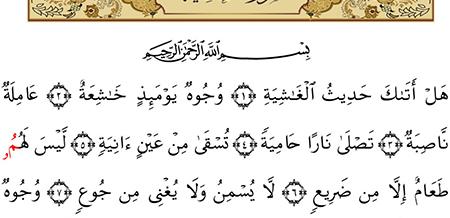 بِسْمِ اللَّهِ الرَّحْمَٰنِ الرَّحِيمِ
هَلْ أَتَىٰكَ حَدِيثُ الْغَٰشِيَةِ ﴿١﴾ وُجُوهٌ يَوْمَئِذٍ خَٰشِعَةٌ ﴿٢﴾ عَامِلَةٌ
نَّاصِبَةٌ ﴿٣﴾ تَصْلَىٰ نَارًا حَامِيَةً ﴿٤﴾ تُسْقَىٰ مِنْ عَيْنٍ ءَانِيَةٍ ﴿٥﴾ لَّيْسَ لَهُمُۥ
طَعَامٌ إِلَّا مِن ضَرِيعٍ ﴿٦﴾ لَّا يُسْمِنُ وَلَا يُغْنِى مِن جُوعٍ ﴿٧﴾ وُجُوهٌ